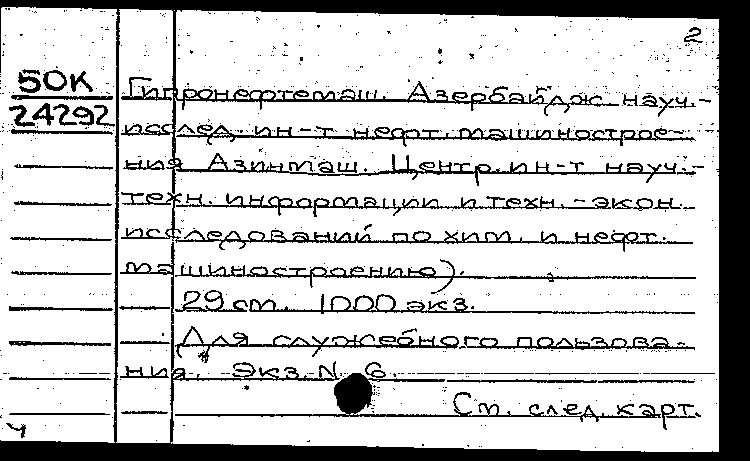 2
50К
24292
Гипронефтемаш. Азербайдж науч.-
исслед. ин-т нефт. машинострое-
ния Азинмаш. Центр. ин-т науч.-
техн. информации и техн.-экон.
исследований по хим. и нефт.
машиностроению).
29 см. 1000 экз.
Для служебного пользова-
ния. Экз. N 6.
См. след. карт.
ч